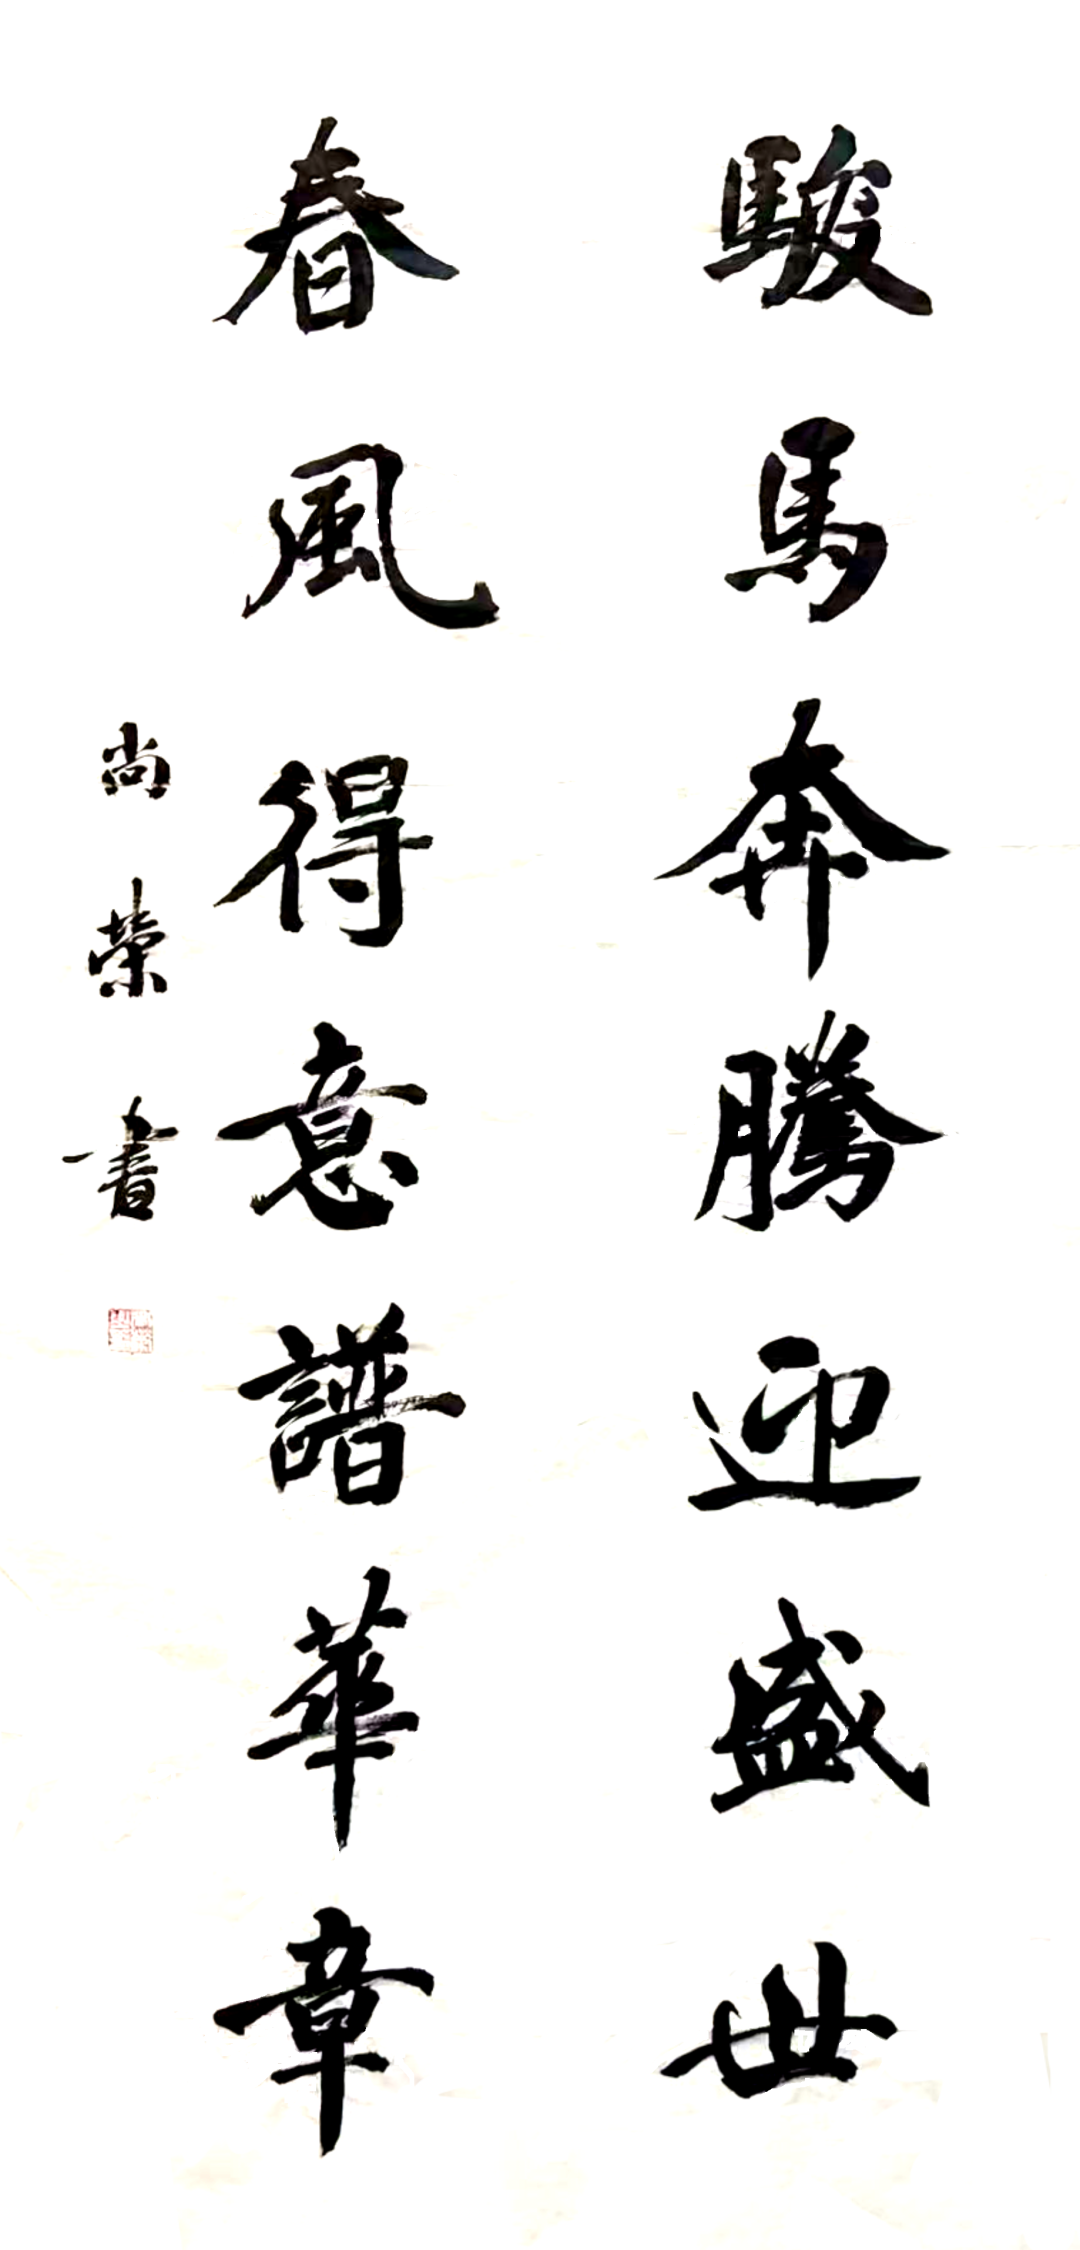 駿馬奔騰迎盛世
春風得意譜華章
尚榮書